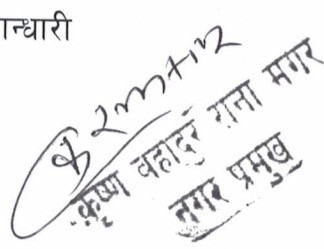 न्धारी
कृष्ण वहादुर राना मगर
नगर प्रमुख